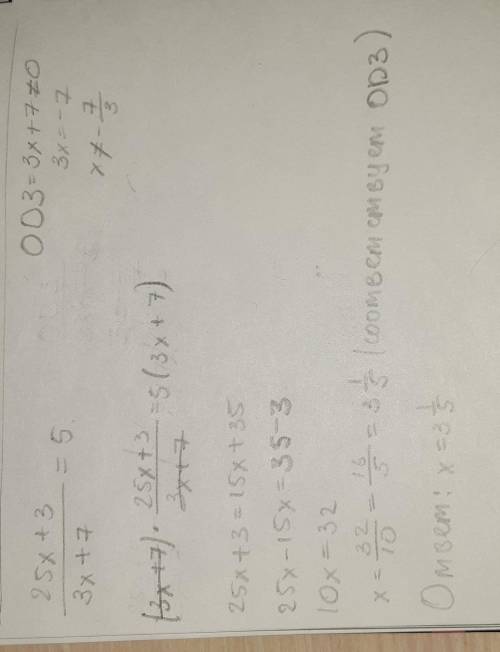 25x+3/3x+7 = 5
ОДЗ = 3x+7≠0
3x = -7
x ≠ -7/3
(3x+7) · 25x+3/3x+7 = 5(3x+7)
25x+3 = 15x+35
25x-15x = 35-3
10x = 32
x = 32/10 = 16/5 = 3 1/5 (соответствует ОДЗ)
Ответ: x = 3 1/5